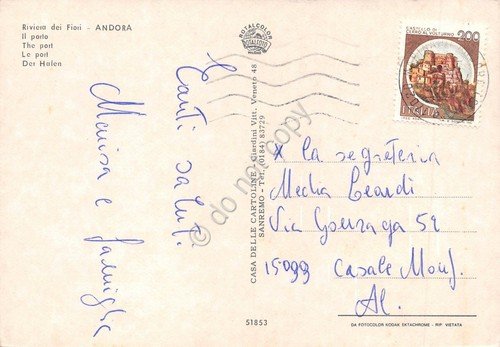 Riviera dei Fiori - ANDORA
Il porto
The port
Le port
Der Hafen
Tanti saluti.
Marisa e famiglia
ROTALCOLOR
ROTALFOTO
CASA DELLE CARTOLINE - Giardini Vitt. Veneto 48
SANREMO - Tel. (0184) 83729
51853
CASTELLO DI
CERRO AL VOLTURNO
200
ITALIA
X la segreteria
Media Leardi
Via Gonzaga 59
15099 Casale Monf.
Al.
DA FOTOCOLOR KODAK EKTACHROME - RIP. VIETATA
© do not copy